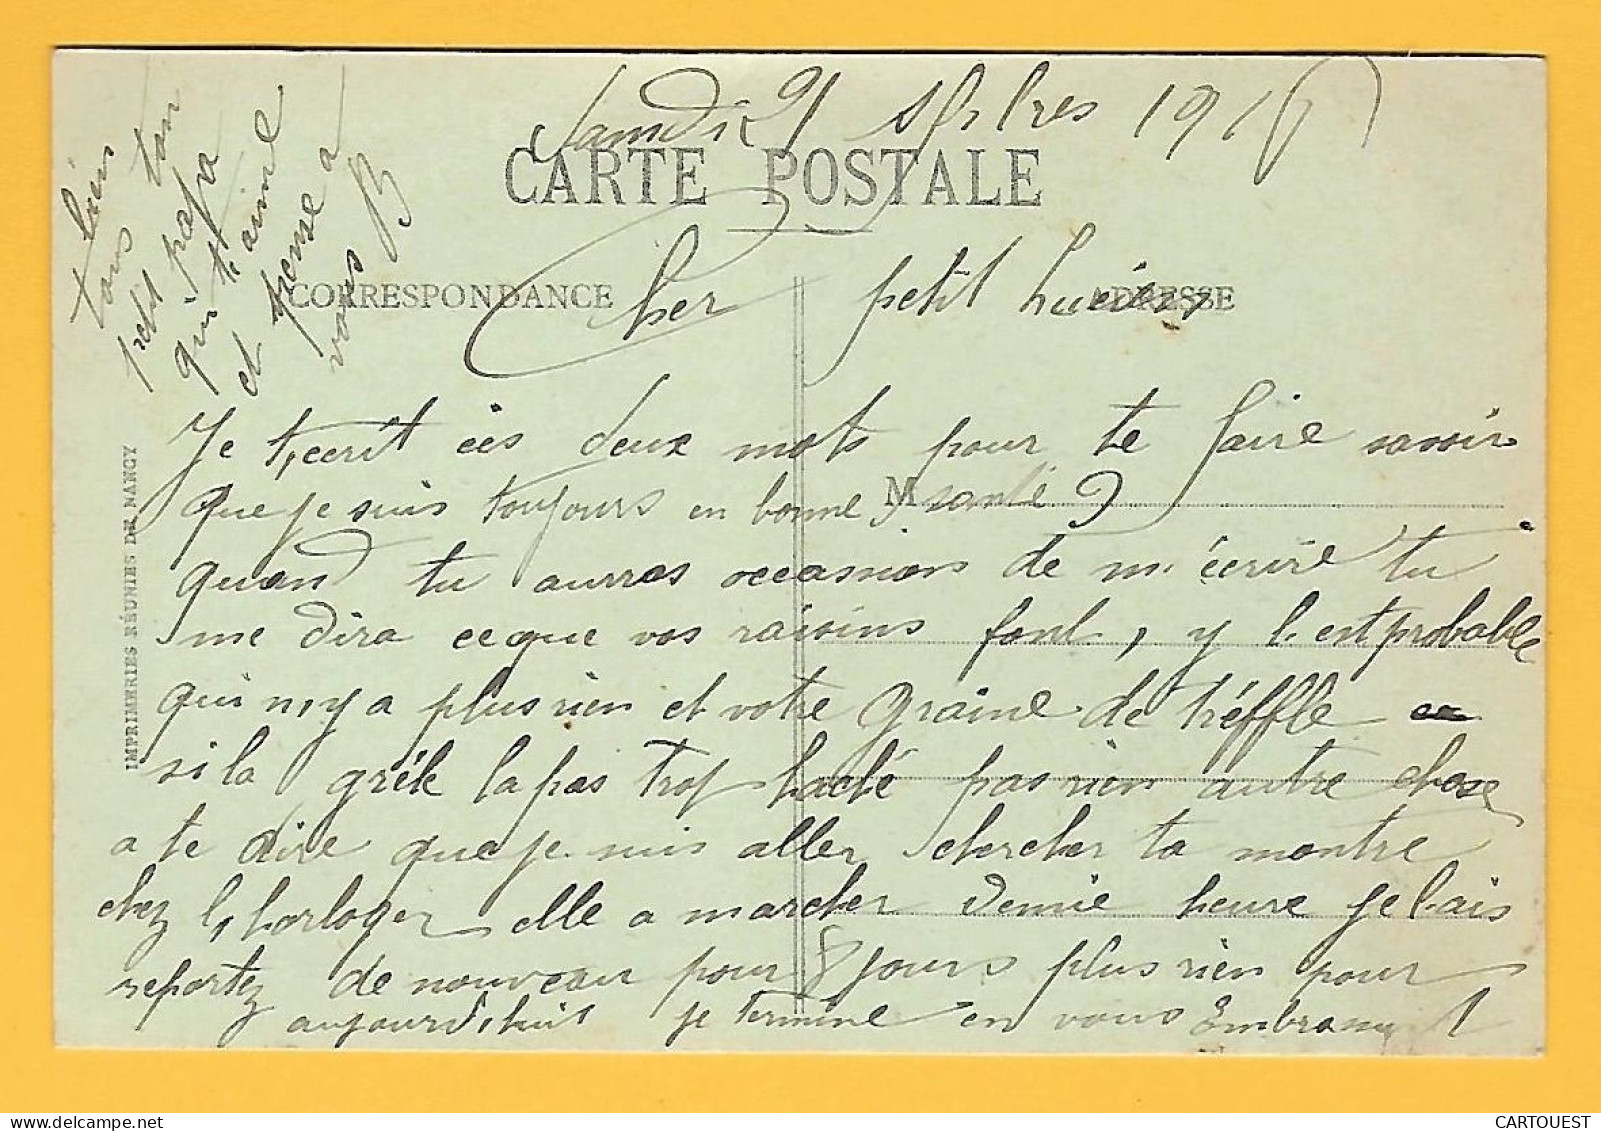 Samdi 9 Sptbres 1916
CARTE POSTALE
CORRESPONDANCE
ADRESSE
Cher petit Lucien
Je t,ecrit ces deux mots pour te faire savoir
que je suis toujours en bonne santé
M
quand tu aurras occasions de m'écrire tu
me dira ceque vos raisins font, y l. est probable
qui n,y a plus rien et votre graine de tréffle
si la grêle la pas trop haché pas rien autre chose
a te dire que je suis aller chercher ta montre
chez l,horloger elle a marcher demie heure je lais
reportez de nouveau pour 8 jours plus rien pour
aujourd,huit je termine en vous Embrassant
bien
tous ton
petit papa
qui t'aime
et pense a
vous B
IMPRIMERIES RÉUNIES DE NANCY
CARTOUEST